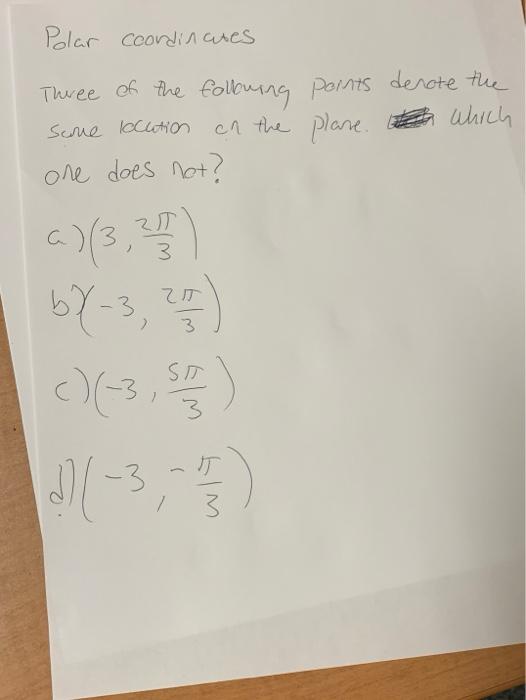 Polar coordinates
Three of the following points denote the
same location on the plane. which
one does not?
a) (3, 2π/3)
b) (-3, 2π/3)
c) (-3, 5π/3)
d) (-3, -π/3)